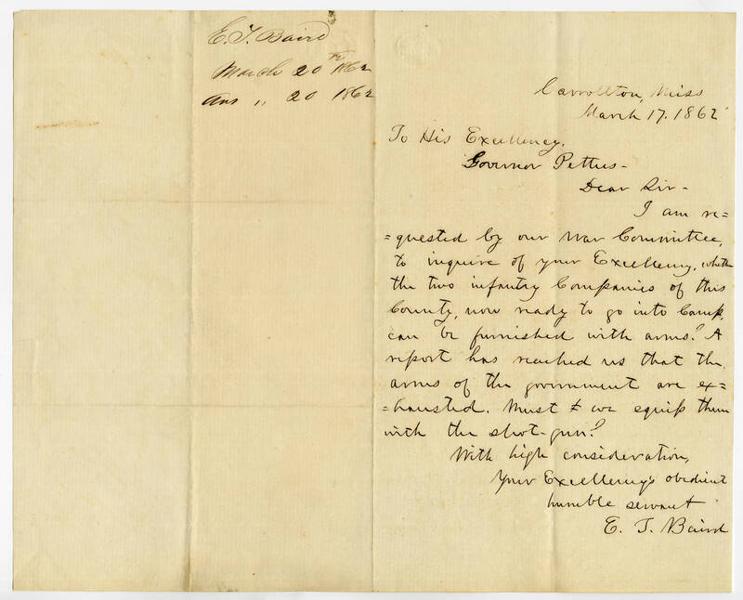 E. T. Baird
March 20th 1862
Ans " 20 1862
Carrollton, Miss
March 17. 1862
To His Excellency,
Governor Pettus-
Dear Sir-
I am re=
=quested by our War Committee,
to inquire of your Excellency, whether
the two infantry Companies of this
County, now ready to go into Camp,
can be furnished with arms? A
report has reached us that the
arms of the government are ex=
=hausted. Must we equip them
with the shot-gun?
With high consideration,
Your Excellency's obedient
humble servant
E. T. Baird